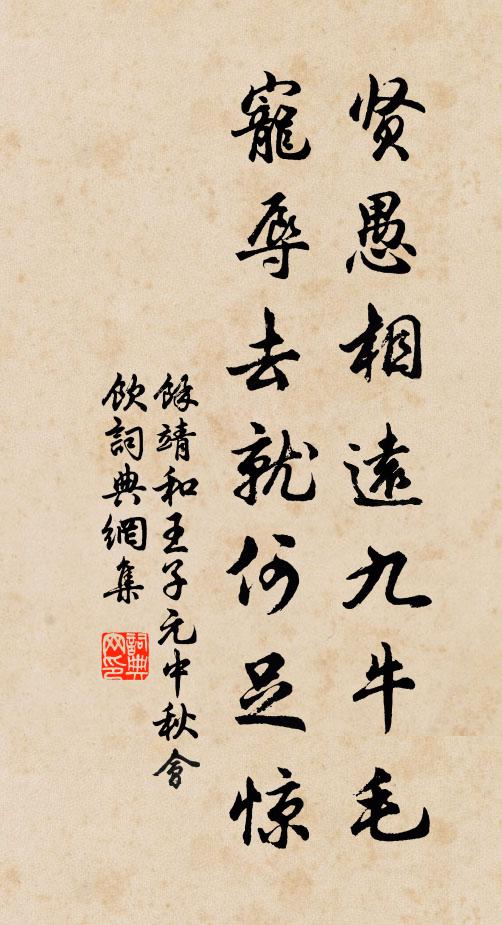 贤愚相遠九牛毛
寵辱去就何足惊
馀靖和王子元中秋會
飲詞典網集
詞典
网印